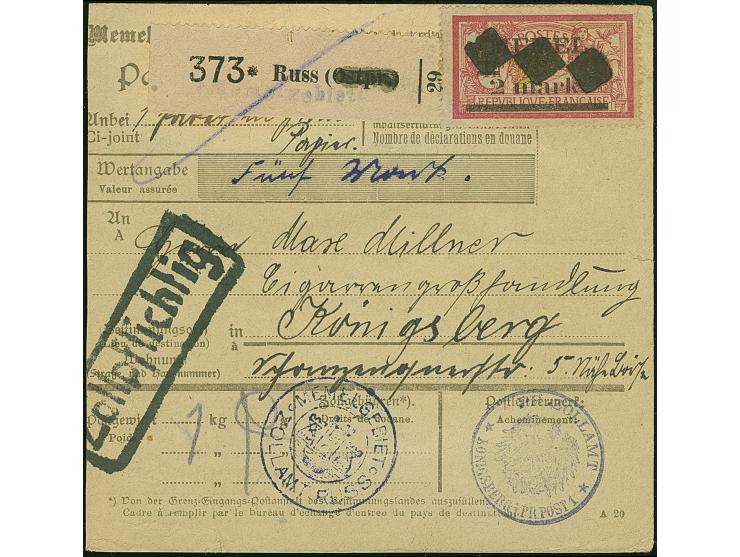 Memel
373* Russ (Ostpr.) 29
MEMEL
POSTES
2 mark
REPUBLIQUE FRANÇAISE
Anbei 1
Ci-joint Papier.
Nombre de déclarations en douane
Wertangabe
Valeur assurée Fünf Mark.
An
A Herrn Max Millner
Cigarrengroßhandlung
Bestimmungsort in
(Lieu de destination) à Königsberg
Wohnung
(Straße und Hausnummer) 5. Nähe Börse
Zollpflichtig
Postgewicht kg
Poids
Zollgebühren*).
Droits de douane.
Postleitvermerk:
Acheminement:
MEMELGEBIET
ZOLLAMT RUSS
ZOLLAMT
KÖNIGSBERG I. PR POST 1
*) Von der Grenz-Eingangs-Postanstalt des Bestimmungslandes auszufüllen.
Cadre à remplir par le bureau d'échange d'entrée du pays de destination. A 20